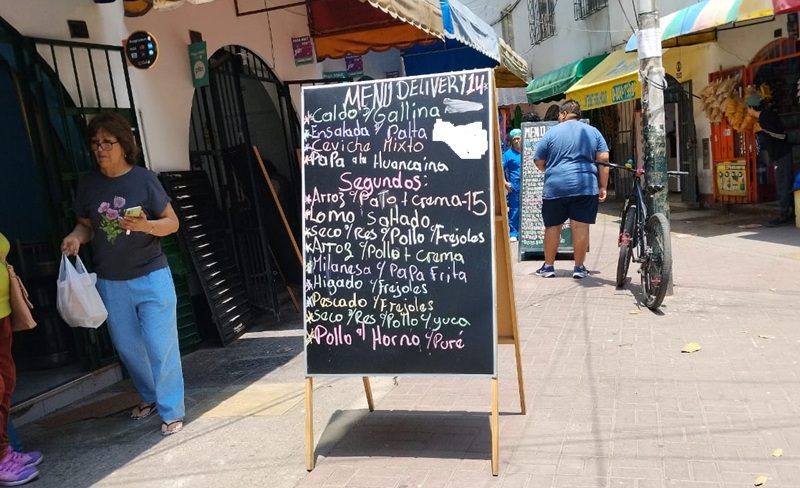 MENÚ DELIVERY 14
*Caldo d/Gallina
*Ensalada d/Palta
*Ceviche Mixto
*Papa a la Huancaina
Segundos:
*Arroz d/Pato + crema-15
*Lomo Saltado
*Seco d/Res d/Pollo c/Frejoles
*Arroz d/Pollo + crema
*Milanesa d/Papa Frita
*Higado c/Frejoles
*Pescado c/Frejoles
*Seco d/Res d/Pollo c/yuca
*Pollo al Horno c/Puré
MENU